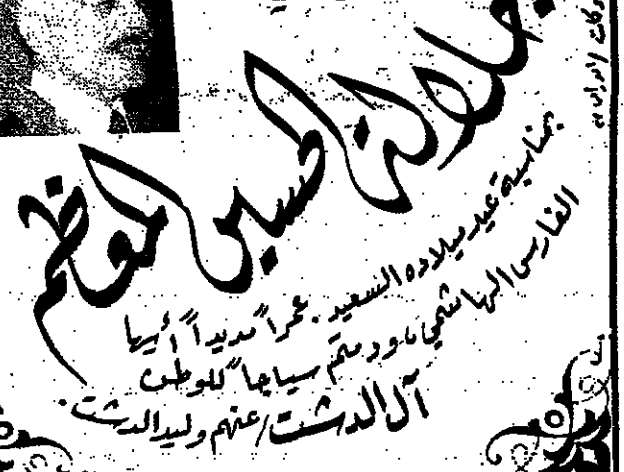 جلالة الحسين المعظم
بمناسبة عيد ميلاده السعيد. عمراً مديداً أيها
الفارس الهاشمي ودمتم سياجاً للوطن
آل الدشت/عنهم وليد الدشت.